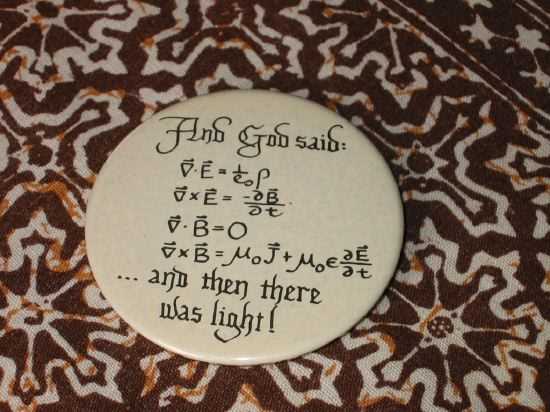 And God said:
∇⃗·E⃗ = 1/ε₀ ρ
∇⃗×E⃗ = -∂B⃗/∂t
∇⃗·B⃗ = 0
∇⃗×B⃗ = μ₀J⃗ + μ₀ε ∂E⃗/∂t
... and then there
was light!